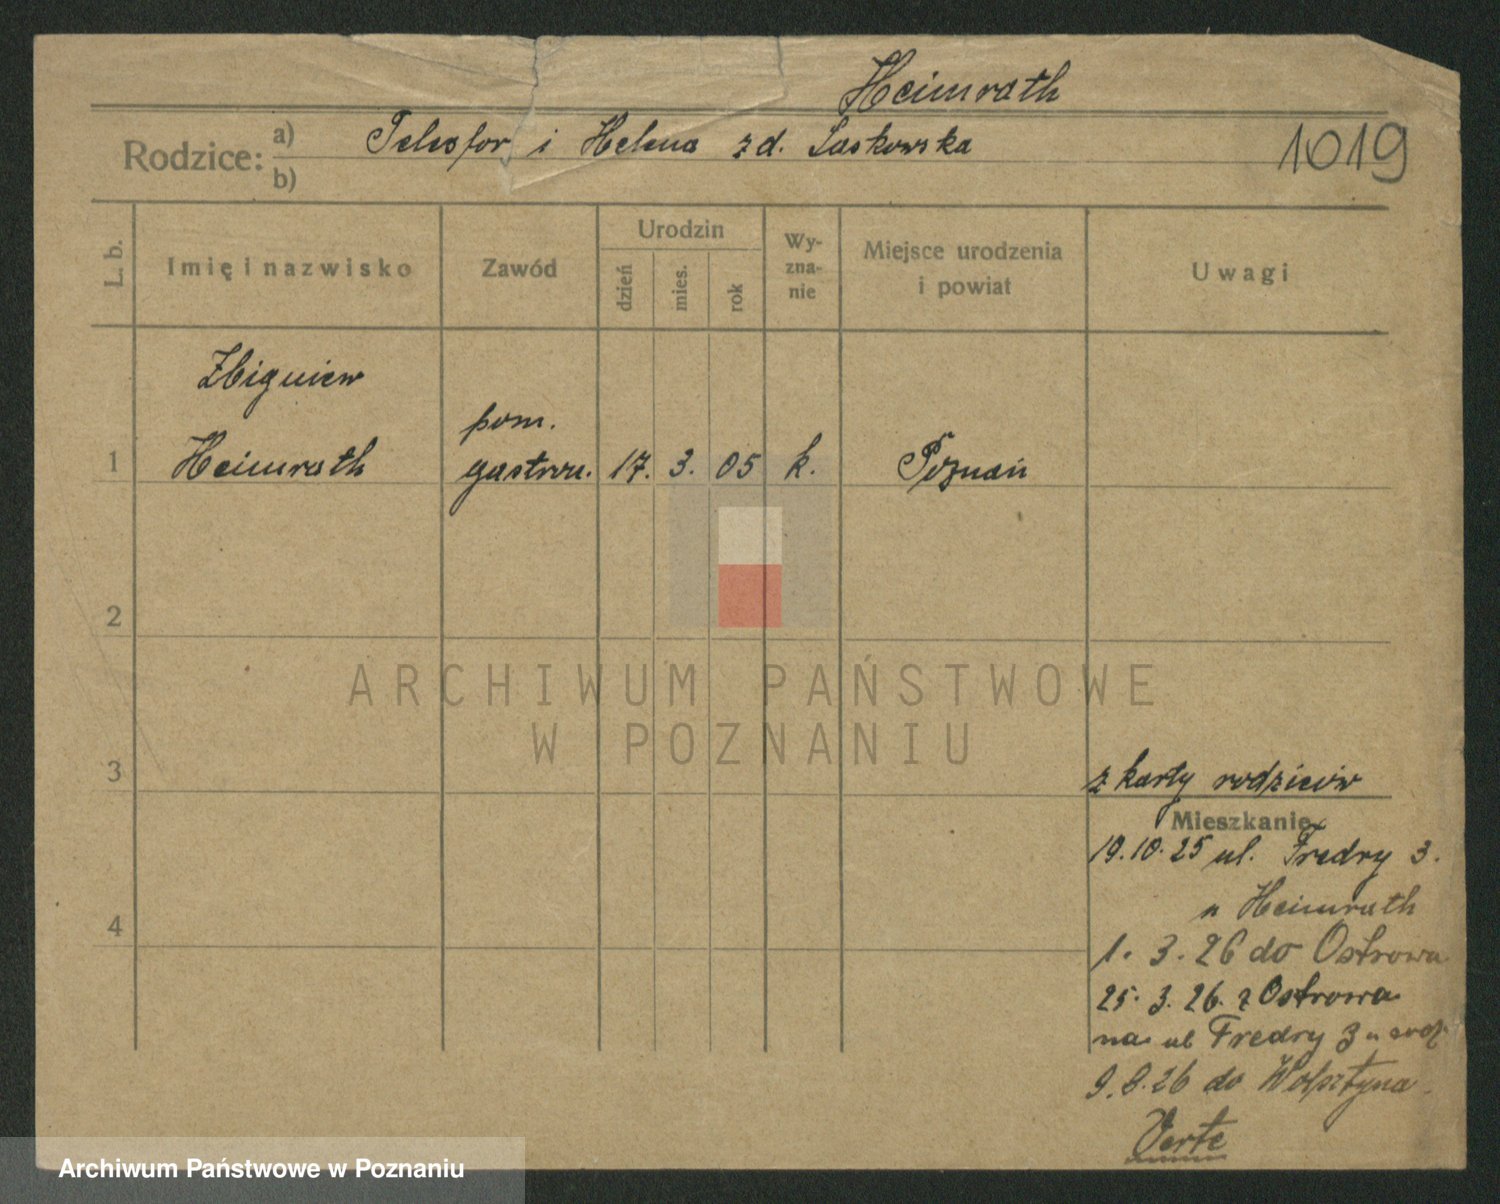 Heimrath
Rodzice: a) Telesfor i Helena zd. Laskowska
b)
1019
L. b.
Imię i nazwisko
Zawód
Urodzin
dzień
mies.
rok
Wy-
zna-
nie
Miejsce urodzenia
i powiat
Uwagi
Zbigniew
pom.
1 Heimrath gastron. 17. 3. 05 k. Poznań
2
ARCHIWUM PAŃSTWOWE
W POZNANIU
3
z karty rodziców
Mieszkanie
19.10.25 ul. Fredry 3.
u Heimrath
4
1. 3. 26 do Ostrowa
25. 3. 26. z Ostrowa
na ul Fredry 3 u rodz.
9.8.26 do Wolsztyna
Verte
Archiwum Państwowe w Poznaniu